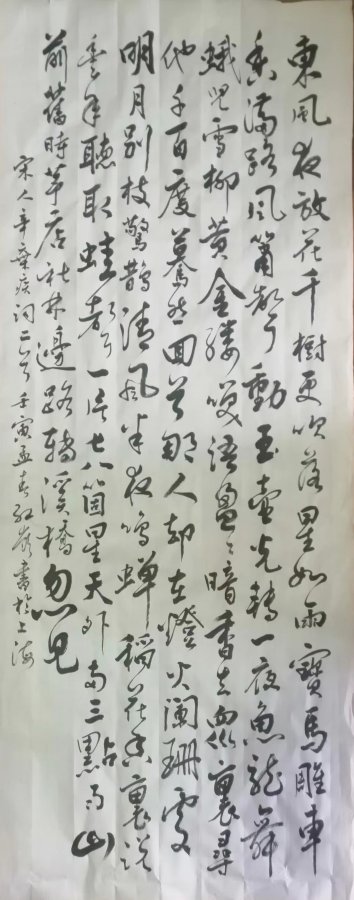 東風夜放花千樹更吹落星如雨寶馬雕車
香滿路風簫聲動玉壺光轉一夜魚龍舞
蛾兒雪柳黃金縷笑語盈々暗香去眾裏尋
他千百度驀然回首那人却在燈火闌珊處
明月別枝驚鵲清風半夜鳴蟬稻花香裏說
豐年聽取蛙聲一片七八箇星天外兩三點雨山
前舊時茅店社林邊路轉溪橋忽見
宋人辛棄疾詞二首壬寅孟春紅書於上海